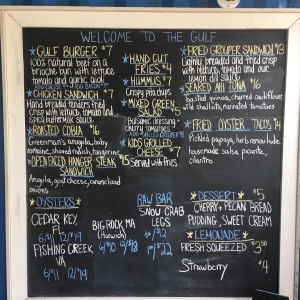 WELCOME TO THE GULF
GULF BURGER $7
100% natural beef on a
brioche bun with lettuce,
tomato and garlic aioli
CHICKEN SANDWICH $7
Hand breaded tenders fried
crisp with lettuce, tomato and
spicy buttermilk
ROASTED COBIA $16
arugula, baby
romaine, shaved radish,
OPEN FACED HANGER STEAK
SANDWICH $15
Arugula, goat cheese, caramelized
onions
HAND CUT
FRIES $4
HUMMUS $7
Crispy pita chips
MIXED GREEN
SALAD
Balsamic dressing
cherry tomatoes
KIDS GRILLED
CHEESE $7
Served with fries
FRIED GROUPER SANDWICH $13
Lightly breaded and fried crisp
with lettuce, tomato and our
lemon dill sauce
SEARED AHI TUNA $16
Toasted quinoa, charred cauliflower
wild shallots, marinated tomatoes
FRIED OYSTER TACOS $14
Pickled papaya, herb remoulade
homemade salsa, picante,
cilantro
OYSTERS
CEDAR KEY,
FL
6/$11 12/$19
FISHING CREEK,
VA
6/$11 12/$19
BIG ROCK, MA
(Harwich)
RAW BAR
SNOW CRAB
LEGS
DESSERT $5
CHERRY + PECAN BREAD
PUDDING, SWEET CREAM
LEMONADE
FRESH SQUEEZED $3.50
Strawberry $4